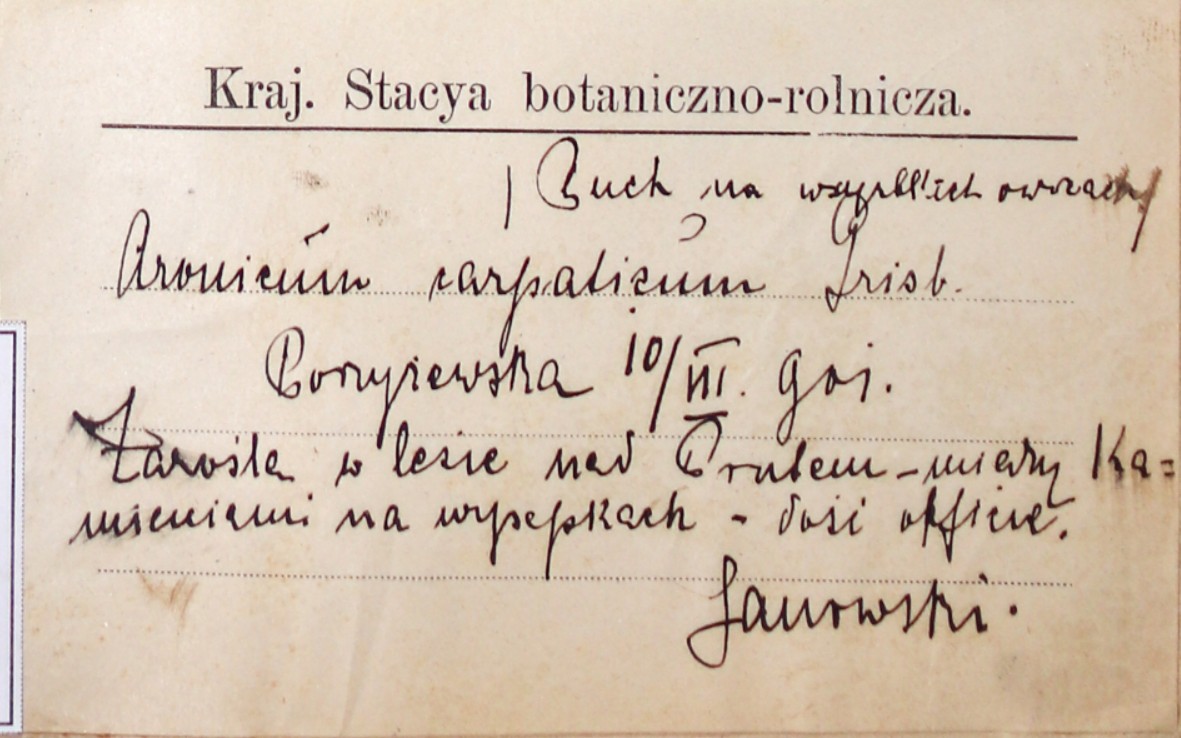 Kraj. Stacya botaniczno-rolnicza.
Puch na wszystkich owocach
Aronicum carpaticum Grisb.
10/III.
Zarośla w lesie nad Prutem - między Ka=
mieniami na wysepkach - dość obficie.
Janowski.